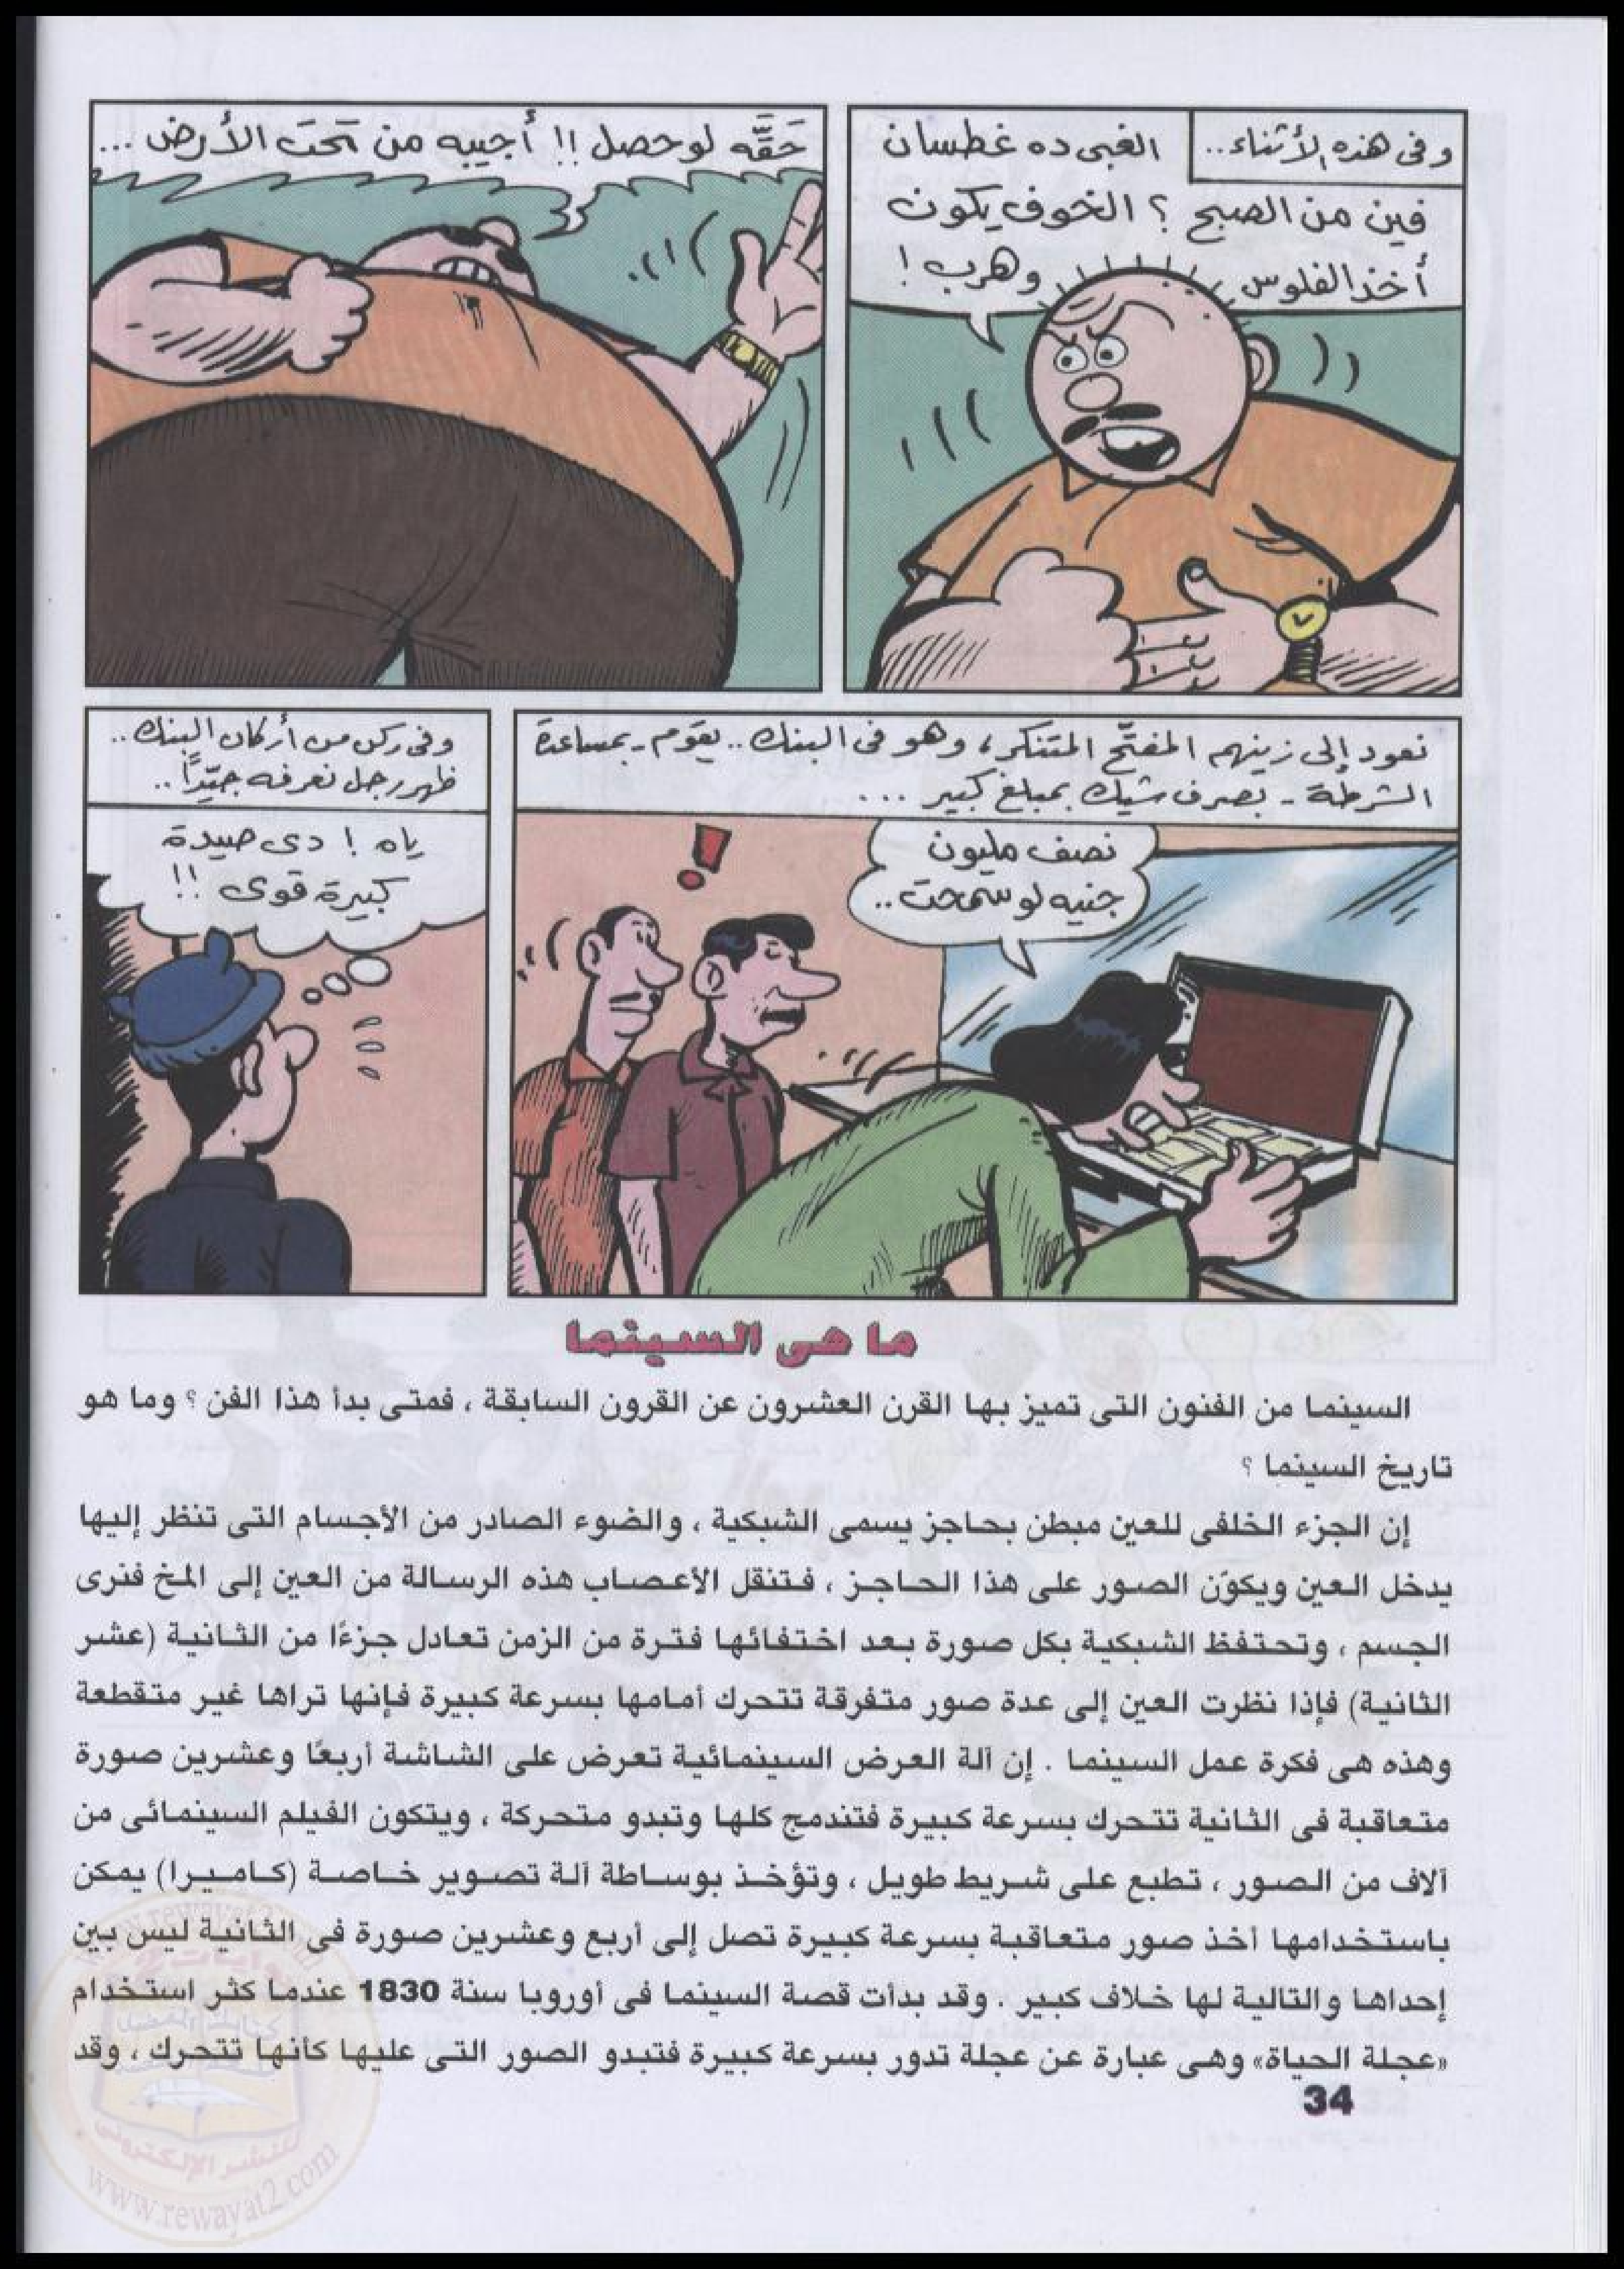 وفى هذه الأثناء..
الغبى ده غطسان
فين من الصبح ؟ الخوف يكون
أخذ الفلوس وهرب !
حَقَّه لو حصل !! أجيبه من تحت الأرض ...
نعود إلى زينهم المفتّح المتنكر، وهو فى البنك .. يقوم - بمساعدة
الشرطة - بصرف شيك بمبلغ كبير ...
نصف مليون
جنيه لو سمحت ..
وفى ركن من أركان البنك ..
ظهر رجل نعرفه جيّدًا ..
ياه ! دى صيدة
كبيرة قوى !!
ما هى السينما
السينما من الفنون التى تميز بها القرن العشرون عن القرون السابقة ، فمتى بدأ هذا الفن ؟ وما هو
تاريخ السينما ؟
إن الجزء الخلفى للعين مبطن بحاجز يسمى الشبكية ، والضوء الصادر من الأجسام التى تنظر إليها
يدخل العين ويكوّن الصور على هذا الحاجز ، فتنقل الأعصاب هذه الرسالة من العين إلى المخ فنرى
الجسم ، وتحتفظ الشبكية بكل صورة بعد اختفائها فترة من الزمن تعادل جزءًا من الثانية (عشر
الثانية) فإذا نظرت العين إلى عدة صور متفرقة تتحرك أمامها بسرعة كبيرة فإنها تراها غير متقطعة
وهذه هى فكرة عمل السينما . إن آلة العرض السينمائية تعرض على الشاشة أربعًا وعشرين صورة
متعاقبة فى الثانية تتحرك بسرعة كبيرة فتندمج كلها وتبدو متحركة ، ويتكون الفيلم السينمائى من
آلاف من الصور ، تطبع على شريط طويل ، وتؤخذ بوساطة آلة تصوير خاصة (كاميرا) يمكن
باستخدامها أخذ صور متعاقبة بسرعة كبيرة تصل إلى أربع وعشرين صورة فى الثانية ليس بين
إحداها والتالية لها خلاف كبير . وقد بدأت قصة السينما فى أوروبا سنة 1830 عندما كثر استخدام
«عجلة الحياة» وهى عبارة عن عجلة تدور بسرعة كبيرة فتبدو الصور التى عليها كأنها تتحرك ، وقد
34
للنشر الإلكترونى
www.rewayat2.com